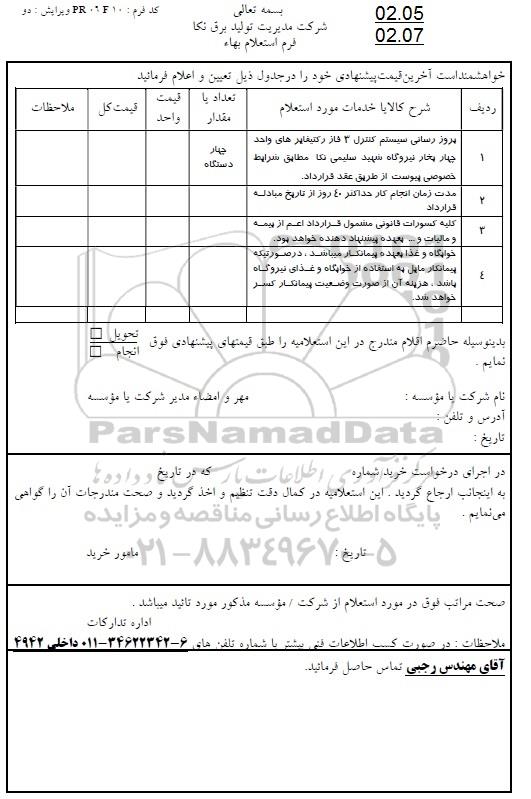 بسمه تعالی
کد فرم : PR ۰۶ F ۱۰ ویرایش : دو
02.05
شرکت مدیریت تولید برق نکا
02.07
فرم استعلام بهاء
خواهشمنداست آخرین‌قیمت‌پیشنهادی خود را درجدول ذیل تعیین و اعلام فرمائید
ردیف
شرح کالایا خدمات مورد استعلام
تعداد یا مقدار
قیمت واحد
قیمت‌کل
ملاحظات
۱
بروز رسانی سیستم کنترل ۳ فاز رکتیفایر های واحد
چهار بخار نیروگاه شهید سلیمی نکا مطابق شرایط
خصوصی پیوست از طریق عقد قرارداد.
چهار
دستگاه
۲
مدت زمان انجام کار حداکثر ۴۰ روز از تاریخ مبادله
قرارداد
۳
کلیه کسورات قانونی مشمول قرارداد اعم از بیمه
و مالیات و ... بعهده پیشنهاد دهنده خواهد بود.
۴
خوابگاه و غذا بعهده پیمانکار میباشد ، درصورتیکه
پیمانکار مایل به استفاده از خوابگاه و غذای نیروگاه
باشد ، هزینه آن از صورت وضعیت پیمانکار کسر
خواهد شد.
بدینوسیله حاضرم اقلام مندرج در این استعلامیه را طبق قیمتهای پیشنهادی فوق تحویل
انجام
نمایم .
نام شرکت یا مؤسسه : مهر و امضاء مدیر شرکت یا مؤسسه
آدرس و تلفن :
تاریخ :
ParsNamadData
در اجرای درخواست خرید شماره که در تاریخ
مرکز فرآوری اطلاعات پارس نماد داده ها
به اینجانب ارجاع گردید . این استعلامیه در کمال دقت تنظیم و اخذ گردید و صحت مندرجات آن را گواهی
می‌نمایم .
پایگاه اطلاع رسانی مناقصه و مزایده
تاریخ : مامور خرید
۰۲۱-۸۸۳۴۹۶۷۰-۵
صحت مراتب فوق در مورد استعلام از شرکت / مؤسسه مذکور مورد تائید میباشد .
اداره تدارکات
ملاحظات : در صورت کسب اطلاعات فنی بیشتر با شماره تلفن های ۶-۳۴۶۲۲۳۴۲-۰۱۱ داخلی ۴۹۴۲
آقای مهندس رجبی تماس حاصل فرمائید.